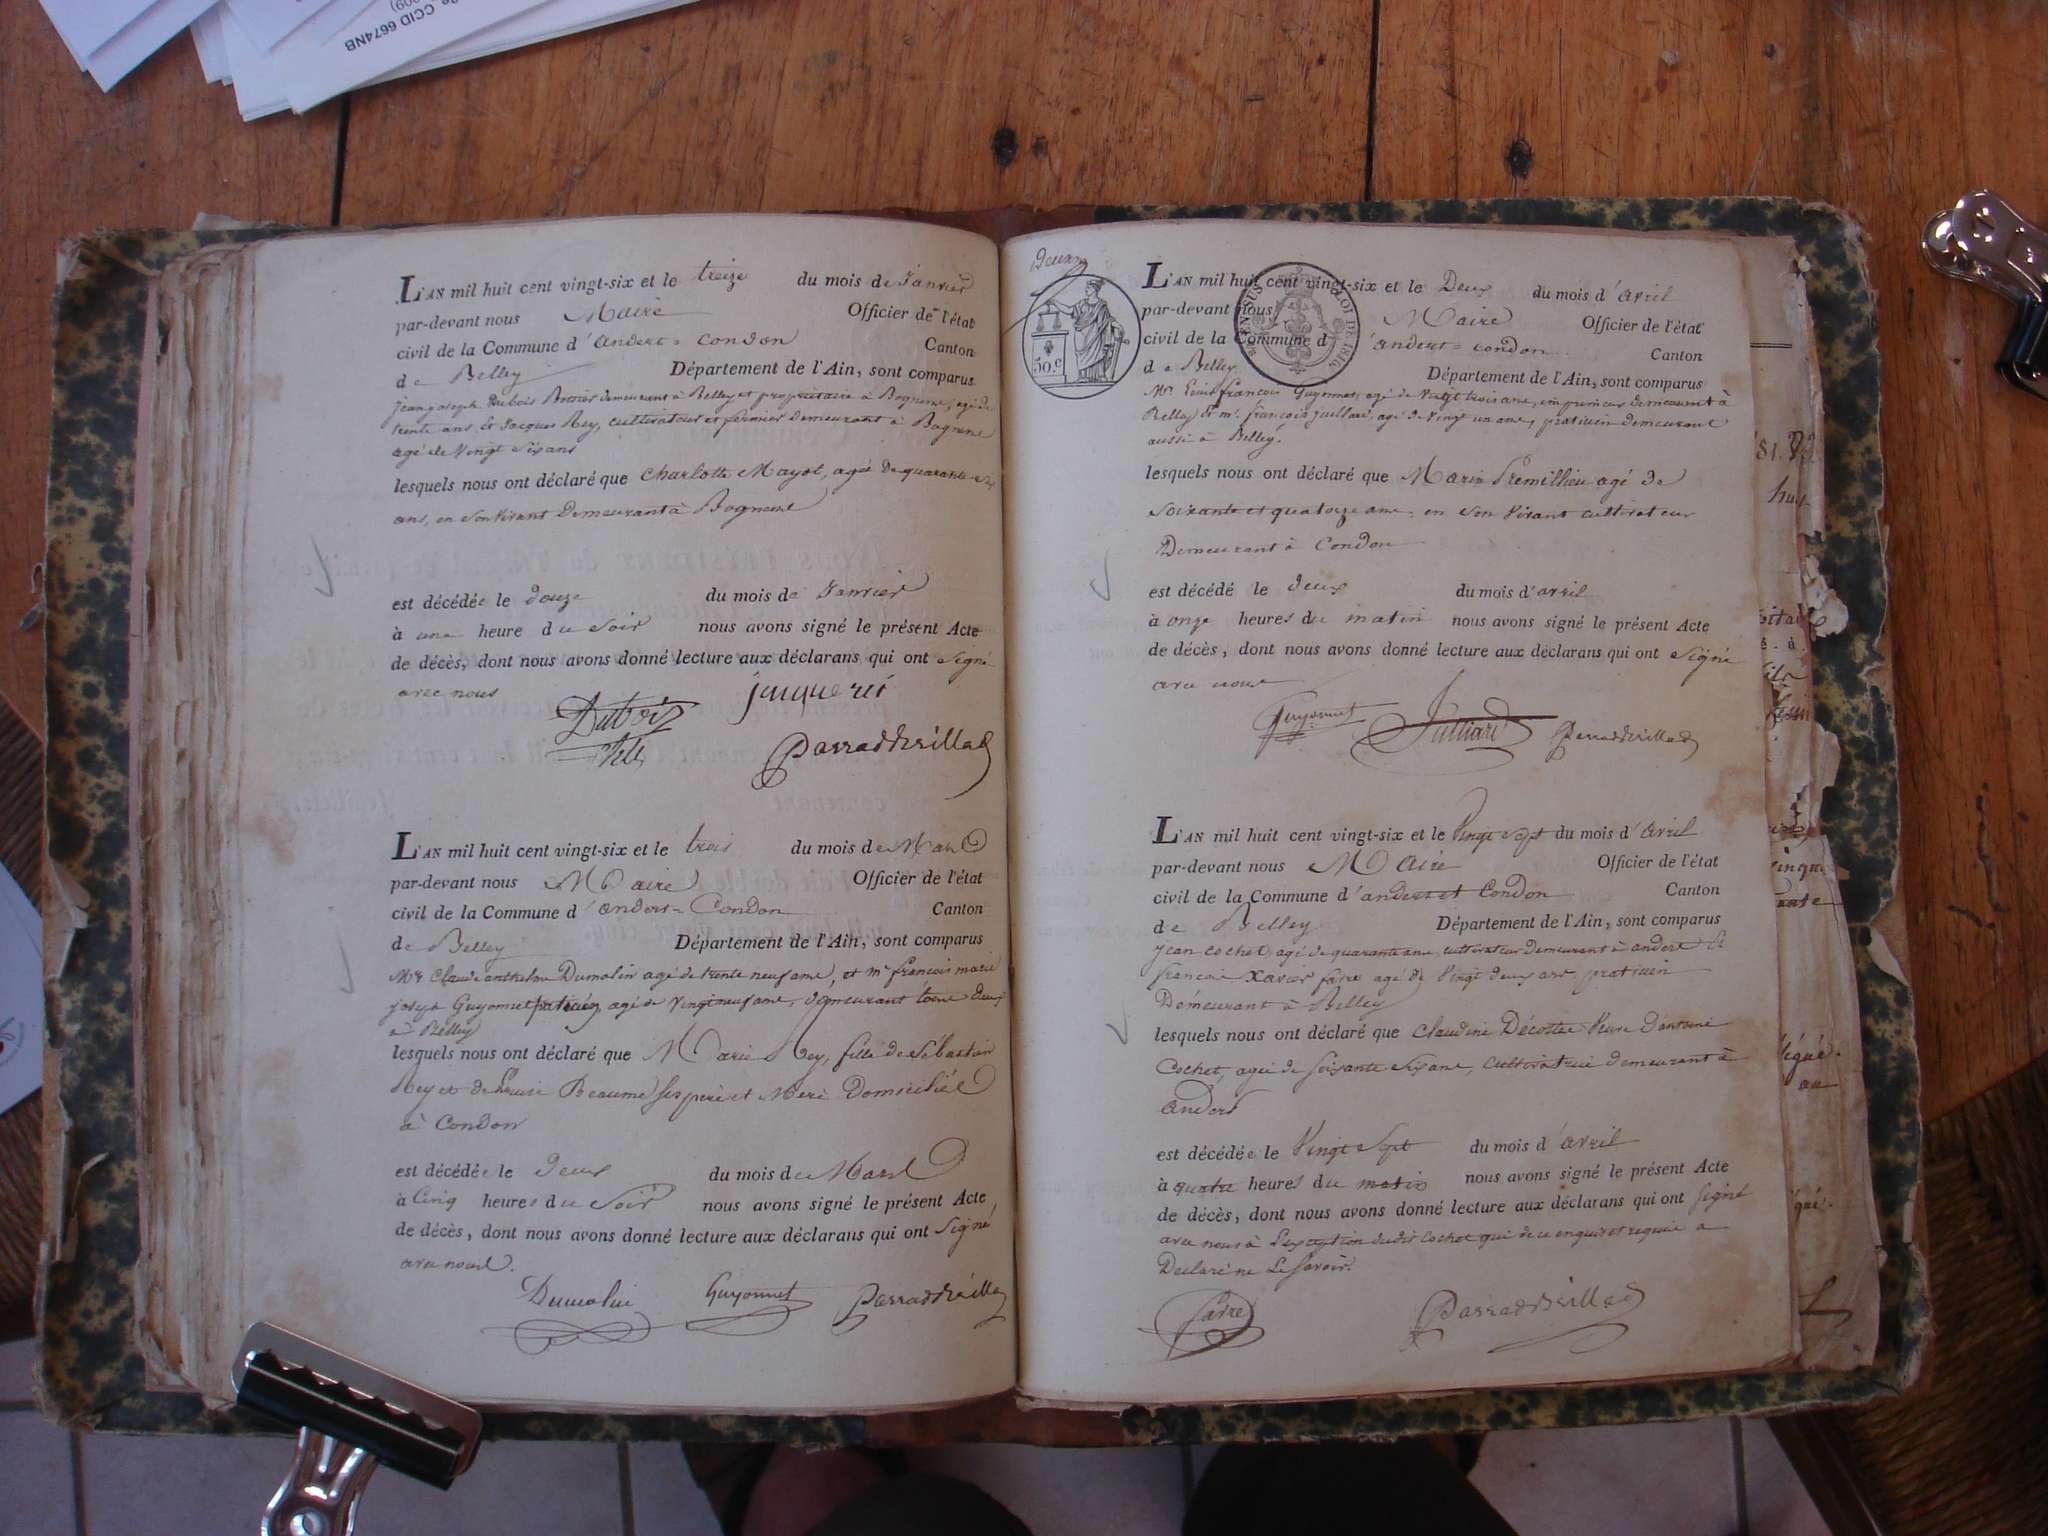 CCID 6674NB
L'AN mil huit cent vingt-six et le treize du mois de Janvier
par-devant nous Maire Officier de l'état
civil de la Commune d'andert-condon Canton
de Belley Département de l'Ain, sont comparus
jean joseph Dubois demeurant à Belley et propriétaire à Bognens, agé de
trente ans, & Jacques Rey, cultivateur et fermier Demeurant à Bognens
agé de Vingt Six ans
lesquels nous ont déclaré que Charlotte Mayot, agée de quarante-
ans, en son Vivant Demeurant à Bognens
est décédée le douze du mois de Janvier
à une heure du Soir nous avons signé le présent Acte
de décès, dont nous avons donné lecture aux déclarans qui ont Signé
avec nous
Dubois
Parraddevillas
L'AN mil huit cent vingt-six et le trois du mois de Mars
par-devant nous Maire Officier de l'état
civil de la Commune d'andert-Condon Canton
de Belley Département de l'Ain, sont comparus
Mr Claude anthelme Dumolin agé de trente neuf ans, et mr françois marie
joseph Guyonnet agé de Vingt neuf ans, demeurant tous deux
à Belley
lesquels nous ont déclaré que Marie Rey, fille de Sébastien
Rey et de Louise Beaume Ses père et Mère Domiciliés
à Condon
est décédée le Deux du mois de Mars
à Cinq heures du Soir nous avons signé le présent Acte
de décès, dont nous avons donné lecture aux déclarans qui ont Signé
avec nous.
Dumolin Guyonnet Parraddevillas
Deux
50.c
LOI DE 1816
L'AN mil huit cent vingt-six et le Deux du mois d'avril
par-devant nous Maire Officier de l'état
civil de la Commune d'andert-condon Canton
de Belley Département de l'Ain, sont comparus
Mr françois Guyonnet, agé de Vingt trois ans, imprimeur demeurant à
Belley & mr. françois juilliard, agé de Vingt un ans, praticien demeurant
aussi à Belley.
lesquels nous ont déclaré que Marin Premillieu agé de
Soixante et quatorze ans, en son Vivant cultivateur
Demeurant à Condon
est décédé le deux du mois d'avril
à onze heures du matin nous avons signé le présent Acte
de décès, dont nous avons donné lecture aux déclarans qui ont Signé
avec nous
Guyonnet Julliard Parraddevillas
L'AN mil huit cent vingt-six et le Vingt Sept du mois d'avril
par-devant nous Maire Officier de l'état
civil de la Commune d'andert et Condon Canton
de Belley Département de l'Ain, sont comparus
Jean Cochet, agé de quarante ans, cultivateur demeurant à andert &
françois Xavier favre agé de Vingt deux ans, praticien
Demeurant à Belley
lesquels nous ont déclaré que Claudine Décotte Veuve d'antoine
Cochet, agée de Soixante Six ans, Cultivatrice demeurant à
andert
est décédée le Vingt Sept du mois d'avril
à quatre heures du matin nous avons signé le présent Acte
de décès, dont nous avons donné lecture aux déclarans qui ont Signé
avec nous à l'exception dudit Cochet qui de ce enquis et requis a
Declaré ne le Savoir.
favre Parraddevillas